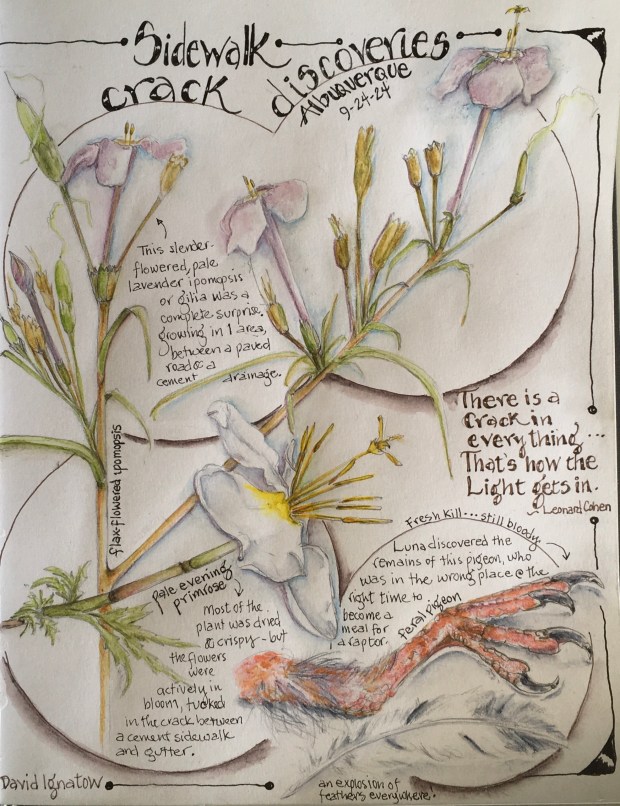 Sidewalk
crack
discoveries
Albuquerque
9-24-24
This slender-
flowered, pale
lavender ipomopsis
or gilia was a
complete surprise.
growing in 1 area,
between a paved
road & a
cement drainage.
flax-flowered ipomopsis
There is a
Crack in
everything...
That's how the
Light gets in.
~Leonard Cohen
pale evening
primrose
Most of the
plant was dried
& crispy - but
the flowers
were
actively in
bloom, tucked
in the crack between
a cement sidewalk
and gutter.
Fresh kill... still bloody
Luna discovered the
remains of this pigeon, who
was in the wrong place @ the
right time to
become a
meal for
a raptor.
feral pigeon
an explosion of
feathers everywhere!
David Ignatow